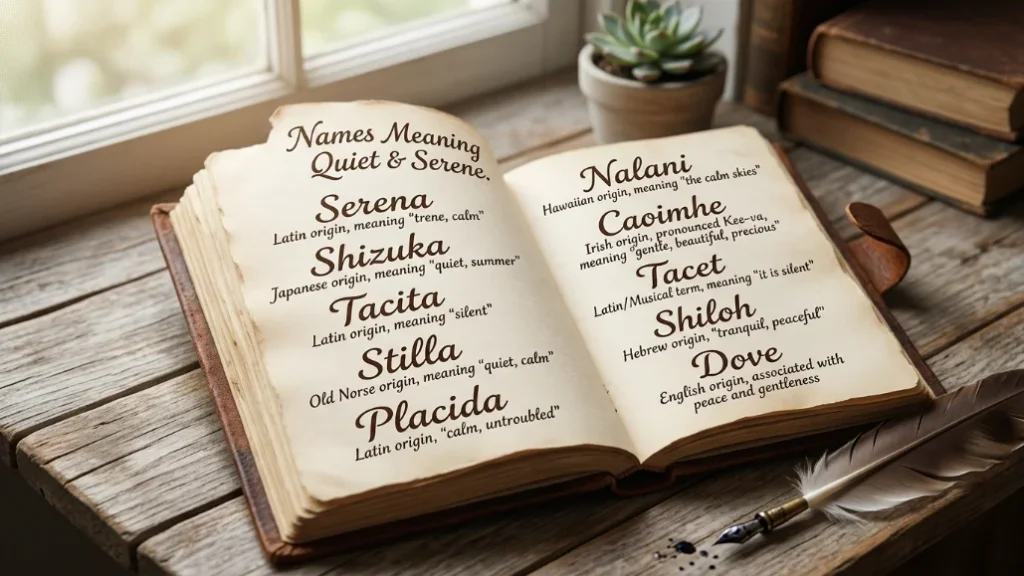 Names Meaning
Quiet & Serene.
Serena
Latin origin, meaning "trene, calm"
Shizuka
Japanese origin, meaning "quiet, summer"
Tacita
Latin origin, meaning "silent"
Stilla
Old Norse origin, meaning "quiet, calm"
Placida
Latin origin, "calm, untroubled"
Nalani
Hawaiian origin, meaning "the calm skies"
Caoimhe
Irish origin, pronounced Kee-va,
meaning "gentle, beautiful, precious"
Tacet
Latin/Musical term, meaning "it is silent"
Shiloh
Hebrew origin, "tranquil, peaceful"
Dove
English origin, associated with
peace and gentleness